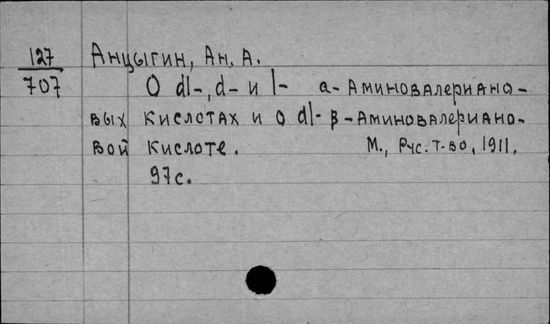 127
707
Анцыгин, Ан. А.
О dl-, d- и l- a-Аминовалериано-
вых кислотах и о dl-β-Аминовалериано-
вой кислоте. М., Рус. Т-во, 1911.
97с.